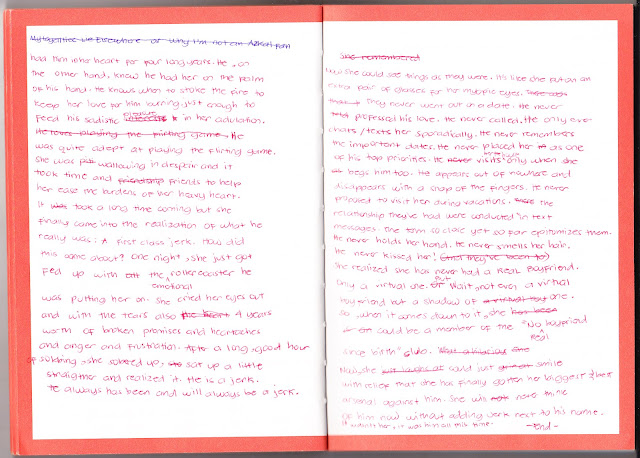 had him in her heart for four long years. He, on
the other hand, knew he had her on the palm
of his hand. He knows when to stoke the fire to
keep her love for him burning, just enough to
pleasure
feed his sadistic interests in her adulation.
He loves playing the flirting game. He
was quite adept at playing the flirting game.
She was wallowing in despair and it
took time and friendship friends to help
her ease the burdens of her heavy heart.
It was took a long time coming but she
finally came into the realization of what he
really was: A first class jerk. How did
this come about? One night, she just got
fed up with the rollercoaster he
emotional
was putting her on. She cried her eyes out
and with the tears also the heart 4 years
worth of broken promises and heartaches
and anger and frustration. After a long, good hour
of sobbing, she sat up a little
straighter and realized it. He is a jerk.
He always has been and will always be a jerk.
She remembered
Now she could see things as they were. It's like she put on an
extra pair of glasses for her myopic eyes.
They never went out on a date. He never
told professed his love. He never called. He only ever
chats/texts her sporadically. He never remembers
the important dates. He never placed her as one
of his top priorities. He never visits only when she
begs him too. He appears out of nowhere and
disappears with a snap of the fingers. He never
proposed to visit her during vacations. The
relationship they've had were conducted in text
messages. The term so cliché yet so far epitomizes them.
He never holds her hand. He never smells her hair.
He never kissed her! (And they've been to)
She realized she has never had a REAL boyfriend.
Only a virtual one. Or wait, not even a virtual
boyfriend but a shadow of a virtual one.
So, when it comes down to it, she has been
could be a member of the "No boyfriend
Real
since birth" club.
Now, she could just smile
with relief that she has finally gotten her biggest & best
arsenal against him. She will not never think
of him now without adding jerk next to his name.
It wasn't her, it was him all this time. -end-